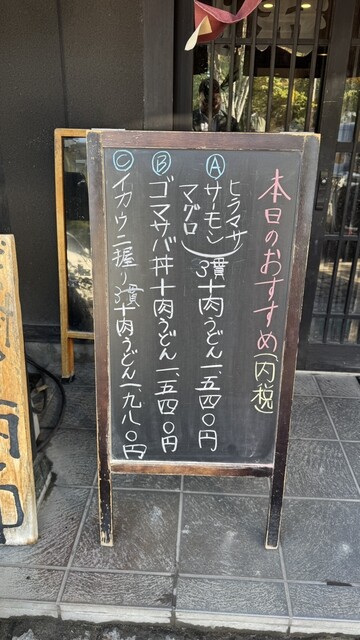 本日のおすすめ(内税)
Ⓐ
ヒラマサ
サモン
マグロ
3貫十肉うどん一、五四〇円
Ⓑゴマサバ丼十肉うどん一、五四〇円
Ⓒイカウニ握り3貫十肉うどん一、九八〇円